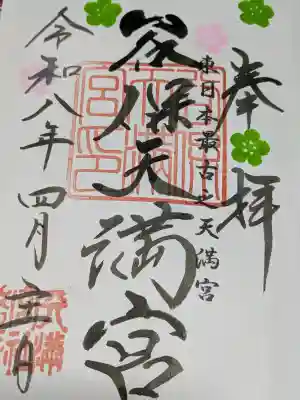 奉拝
東日本最古之天満宮
谷保天満宮
令和八年四月 日